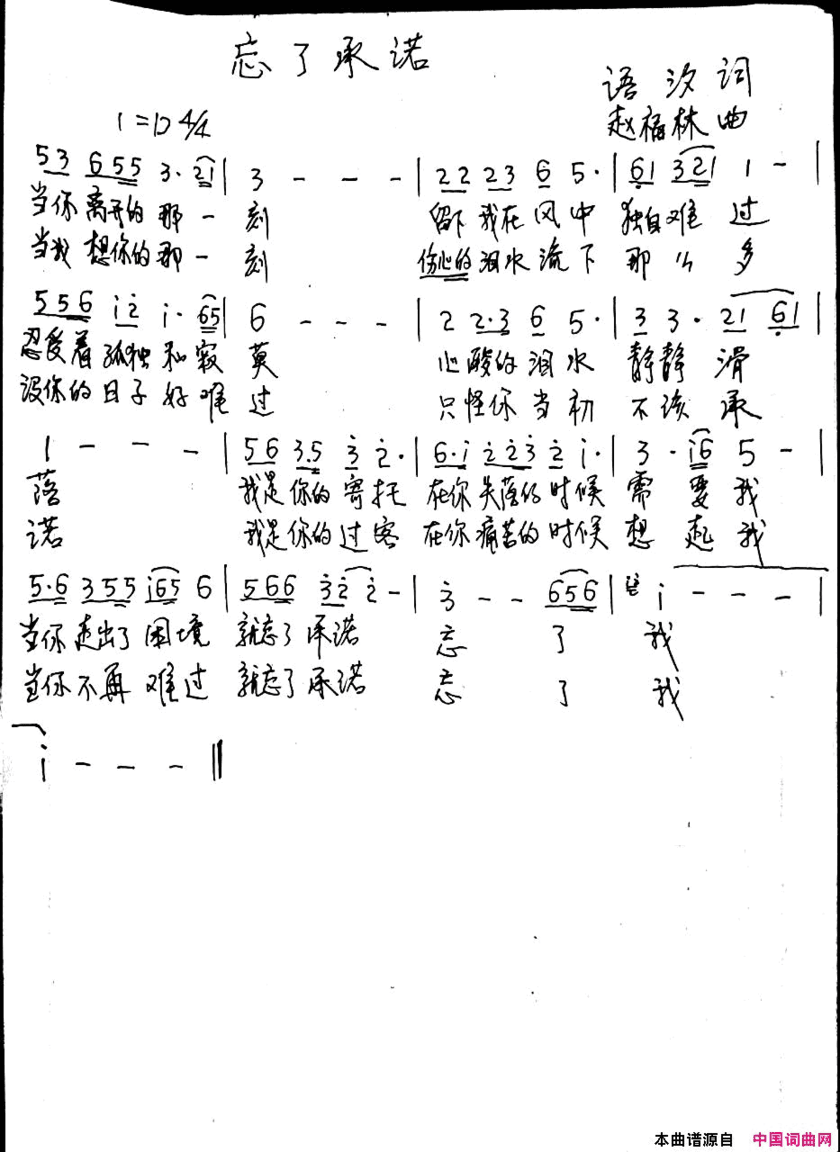 忘了承诺
语汐词
1=D 4/4
赵福林曲
53 655 3·21 | 3 - - - | 22 23 6 5· | 61 321 1 - |
当你离开的那一刻 留下我在风中独自难过
当我想你的那一刻 伤心的泪水流下那么多
556 i2 i·65 | 6 - - - | 2 2·3 6 5· | 3 3· 21 61 |
忍受着孤独和寂莫 心酸的泪水静静滑
没你的日子好难过 只怪你当初不该承
1 - - - | 56 3.5 3 2· | 6·i 223 2 i· | 3·i6 5 - |
落 我是你的寄托在你失落的时候需要我
诺 我是你的过客在你痛苦的时候想起我
5·6 355 i65 6 | 566 32 2 - | 3 - - 656 | i - - - |
当你走出了困境就忘了承诺忘了我
当你不再难过就忘了承诺忘了我
i - - - ||
本曲谱源自 中国词曲网